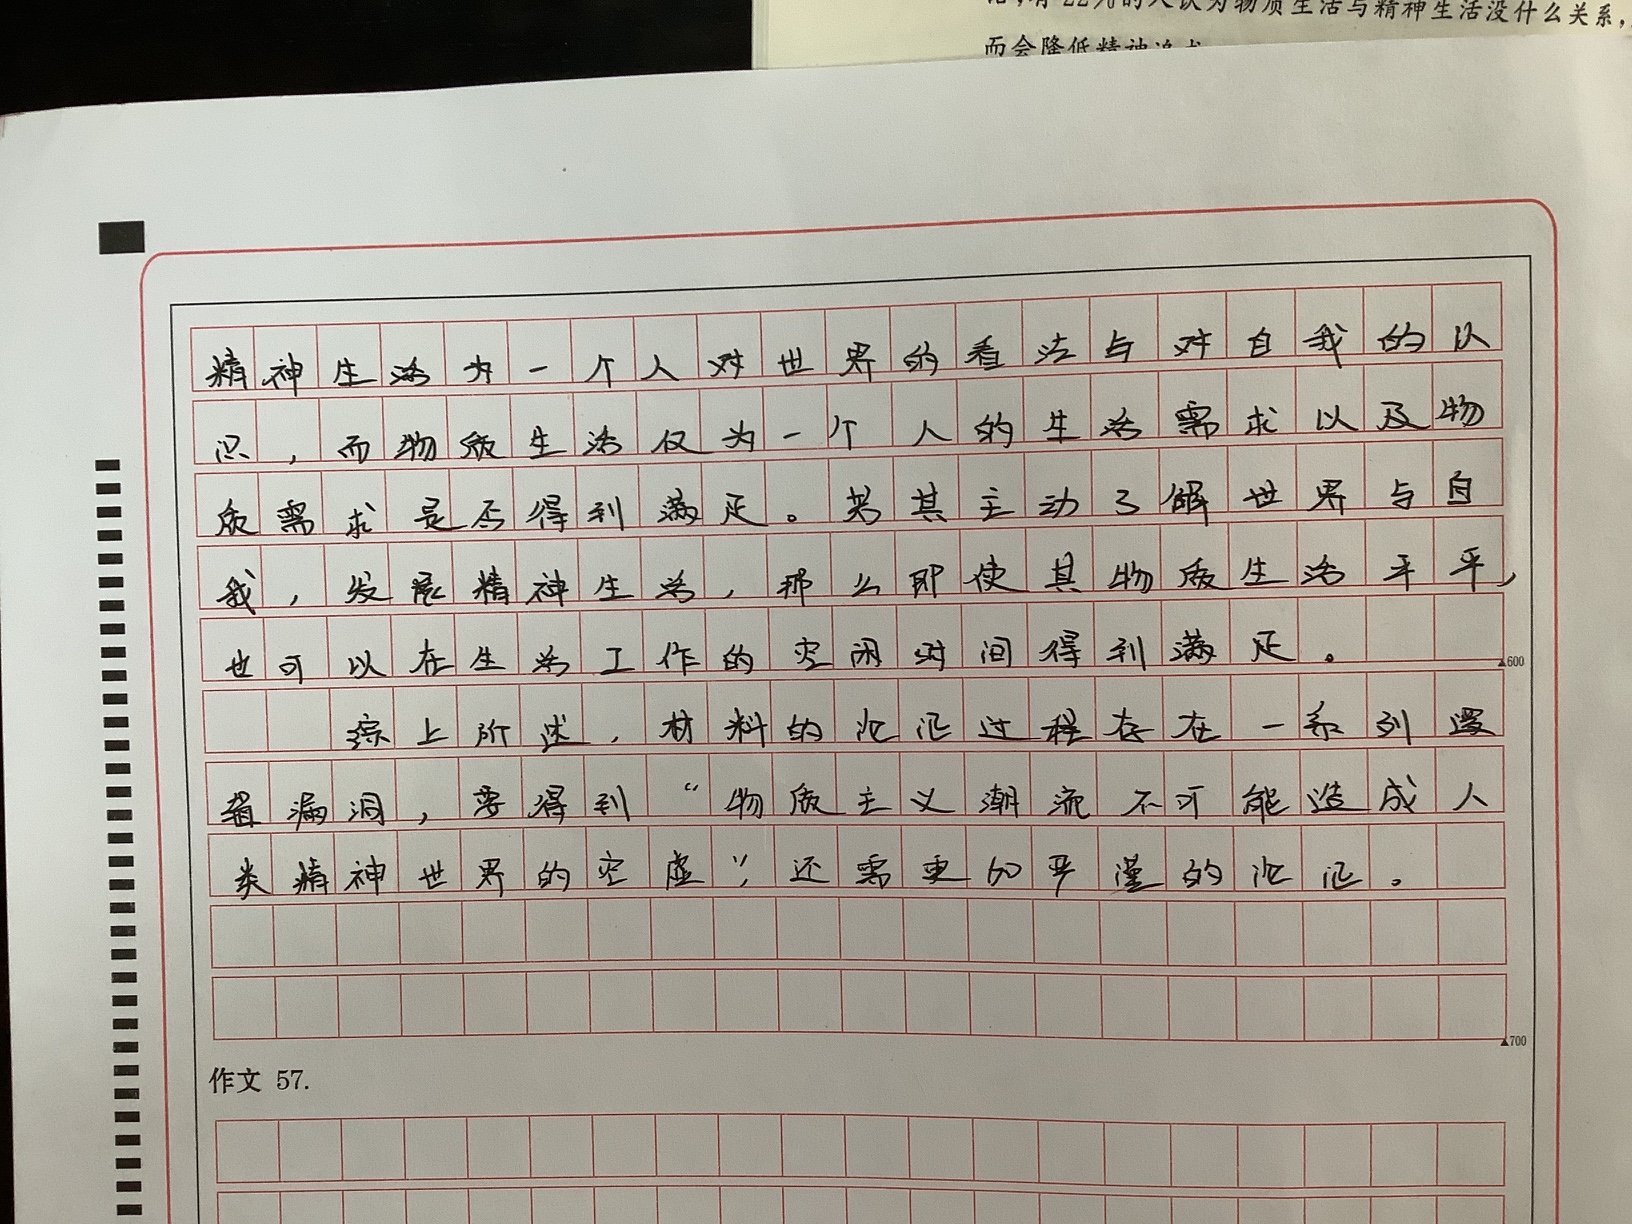 有22%的人认为物质生活与精神生活没什么关系,
而会降低精神追求
精神生活为一个人对世界的看法与对自我的认
识，而物质生活仅为一个人的生活需求以及物
质需求是否得到满足。若其主动了解世界与自
我，发展精神生活，那么即使其物质生活平平，
也可以在生活工作的空闲时间得到满足。
▲600
综上所述，材料的论证过程存在一系列逻
辑漏洞，要得到“物质主义潮流不可能造成人
类精神世界的空虚”，还需更加严谨的论证。
▲700
作文 57.